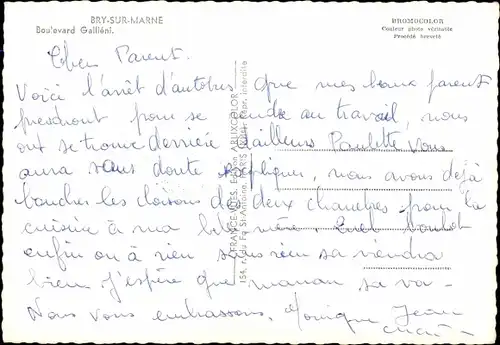 BRY-SUR-MARNE
Boulevard Galliéni.
BROMOCOLOR
Couleur photo véritable
Procédé breveté
Cher Parent.
Voici l'arrêt d'autobus que mes beaux parent
prendront pour se rendre au travail, nous
ont se trouve derrière d'ailleurs Paulette vous
aura sans doute expliquer, nous avons déjà
boucher les cloisons des deux chambres pour la
cuisine à ma be mère. Quel boulot
enfin on à rien sans rien sa viendra
bien j'espère que maman sa va.
Nous vous embrassons. Monique Jean
FRANCE Edition ARLIXCOLOR
154, r. du Fg St-Antoine, PARIS Repr. interdite